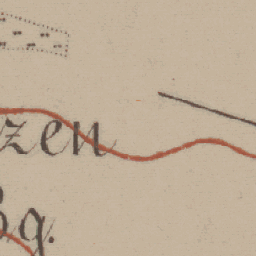 zen
Bg.